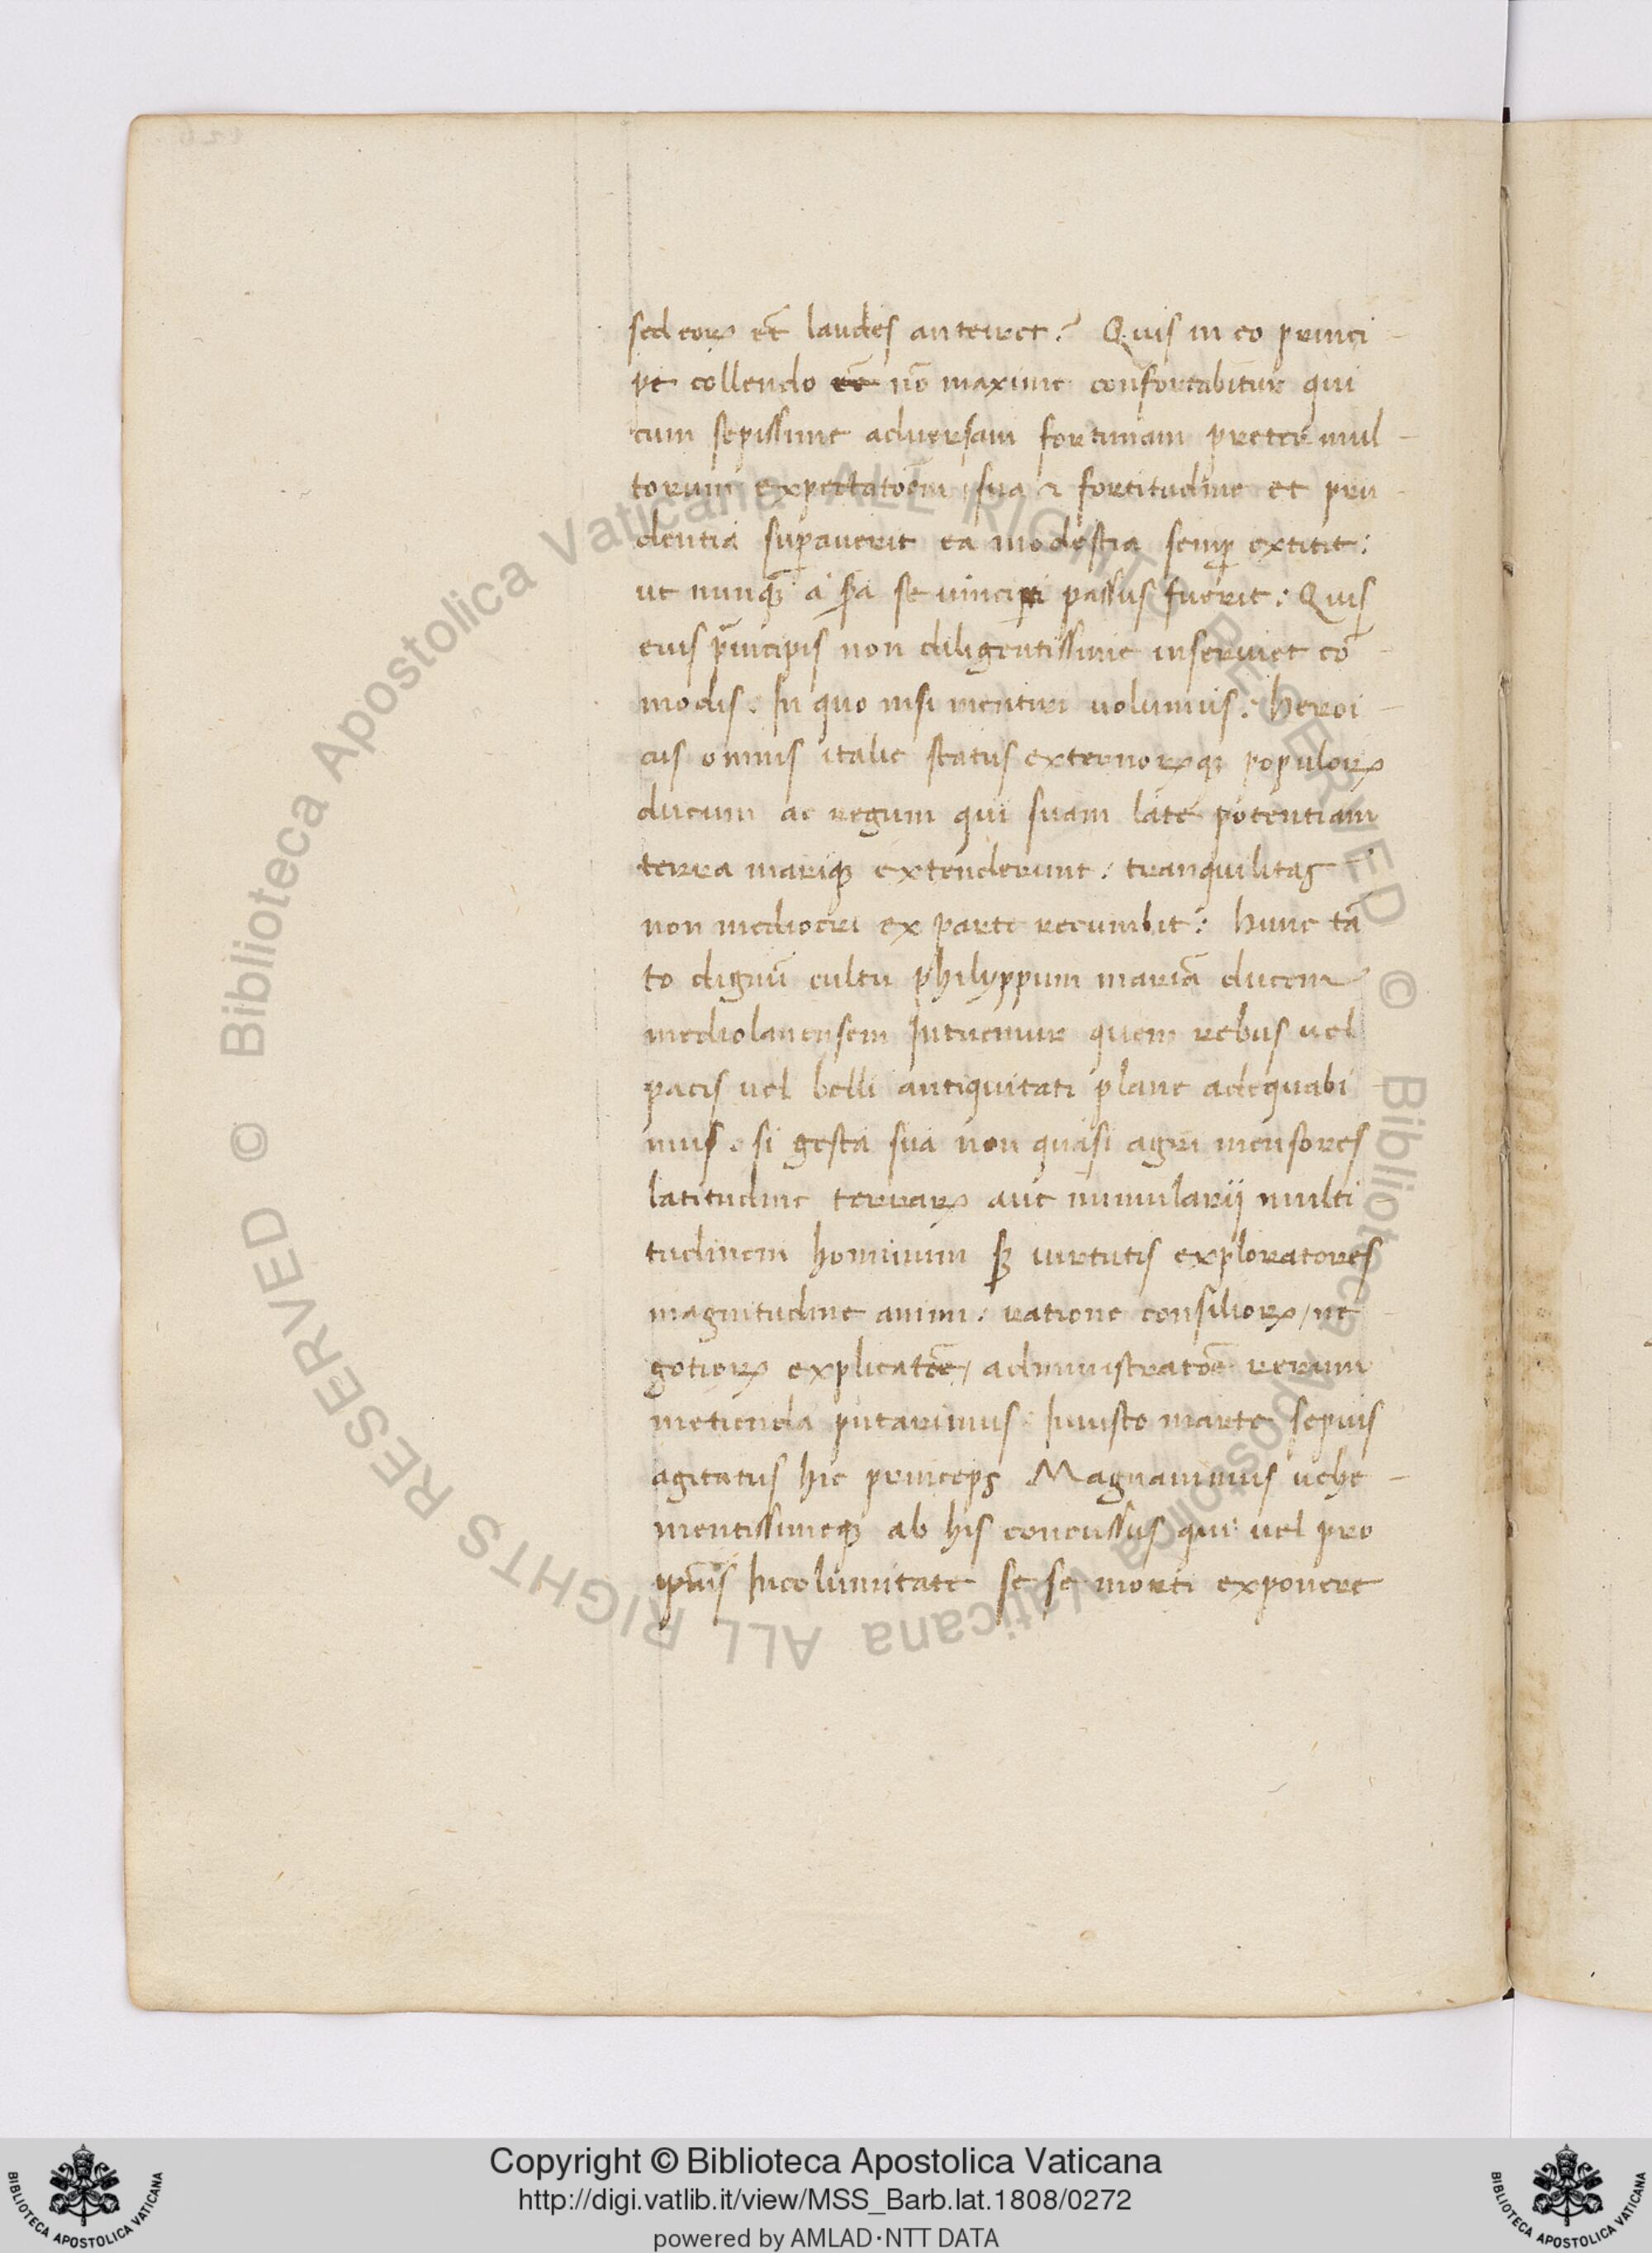 sed eoꝝ et̄ laudes anteiret? Quis in eo princi-
pe collendo nō maxime confortabitur qui
cum sepissime aduersam fortunam preter mul-
torum expectatoēm sua & fortitudine et pru-
dentia suꝑauerit ea modestia semꝑ extitit:
ut nunqꝫ a se uinci passus fuerit: Quis
eius p̄incipis non diligentissime inseruiet cō-
modis. In quo nisi mentiri uolumus: heroi-
cus omnis italie status externoꝝqꝫ populoꝝ
ducum ac regum qui suam late potentiam
terra mariqꝫ extenderunt: tranquilitas
non mediocri ex parte recumbit: hunc tā
to dignū cultu philyppum mariā ducem
mediolanensem Intuemur quem rebus uel
pacis uel belli antiquitati plane adequabi-
mus. si gesta sua non quasi agri mensores
latitudine terraꝝ aut numularij multi
tudinem hominum sꝫ uirtutis exploratores
magnitudine animi: ratione consilioꝝ / ne-
gotioꝝ explicatōe / administratōe rerum
metienda putarimus: Iniusto marte sepius
agitatus hic princeps Magnanimus uehe-
mentissimeqꝫ ab his concussus qui uel pro
Incolumitate se se morti exponere
Copyright © Biblioteca Apostolica Vaticana
http://digi.vatlib.it/view/MSS_Barb.lat.1808/0272
powered by AMLAD·NTT DATA
BIBLIOTECA APOSTOLICA VATICANA
BIBLIOTECA APOSTOLICA VATICANA
© Biblioteca Apostolica Vaticana ALL RIGHTS RESERVED © Biblioteca Apostolica Vaticana ALL RIGHTS RESERVED